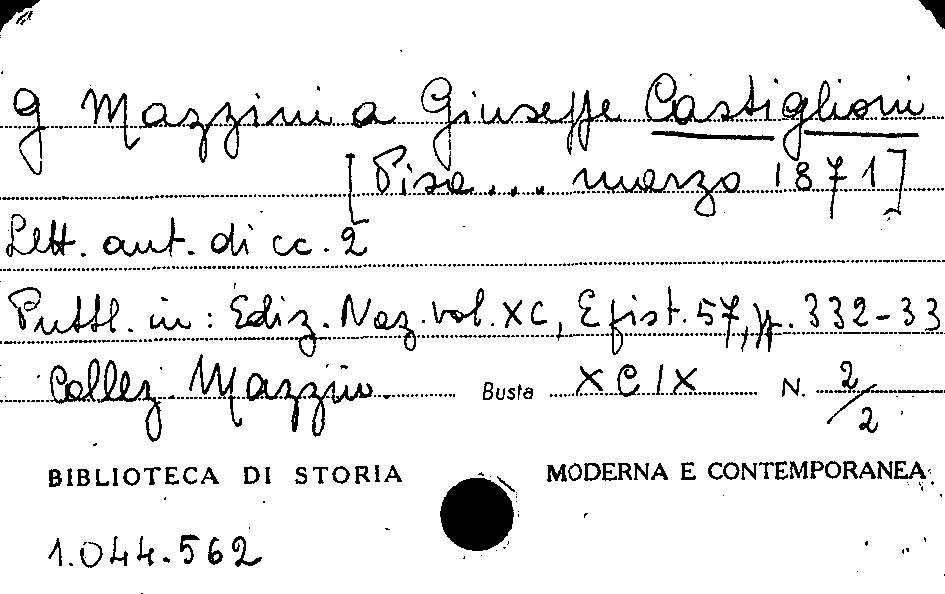 G Mazzini a Giuseppe Castiglioni
[Pisa... marzo 1871]
Lett. aut. di cc. 2
Pubbl. in: Ediz. Naz. vol. XC, Epist. 57, pp. 332-33
Collez. Mazzin. Busta XCIX N. 2/2
BIBLIOTECA DI STORIA MODERNA E CONTEMPORANEA
1.044.562